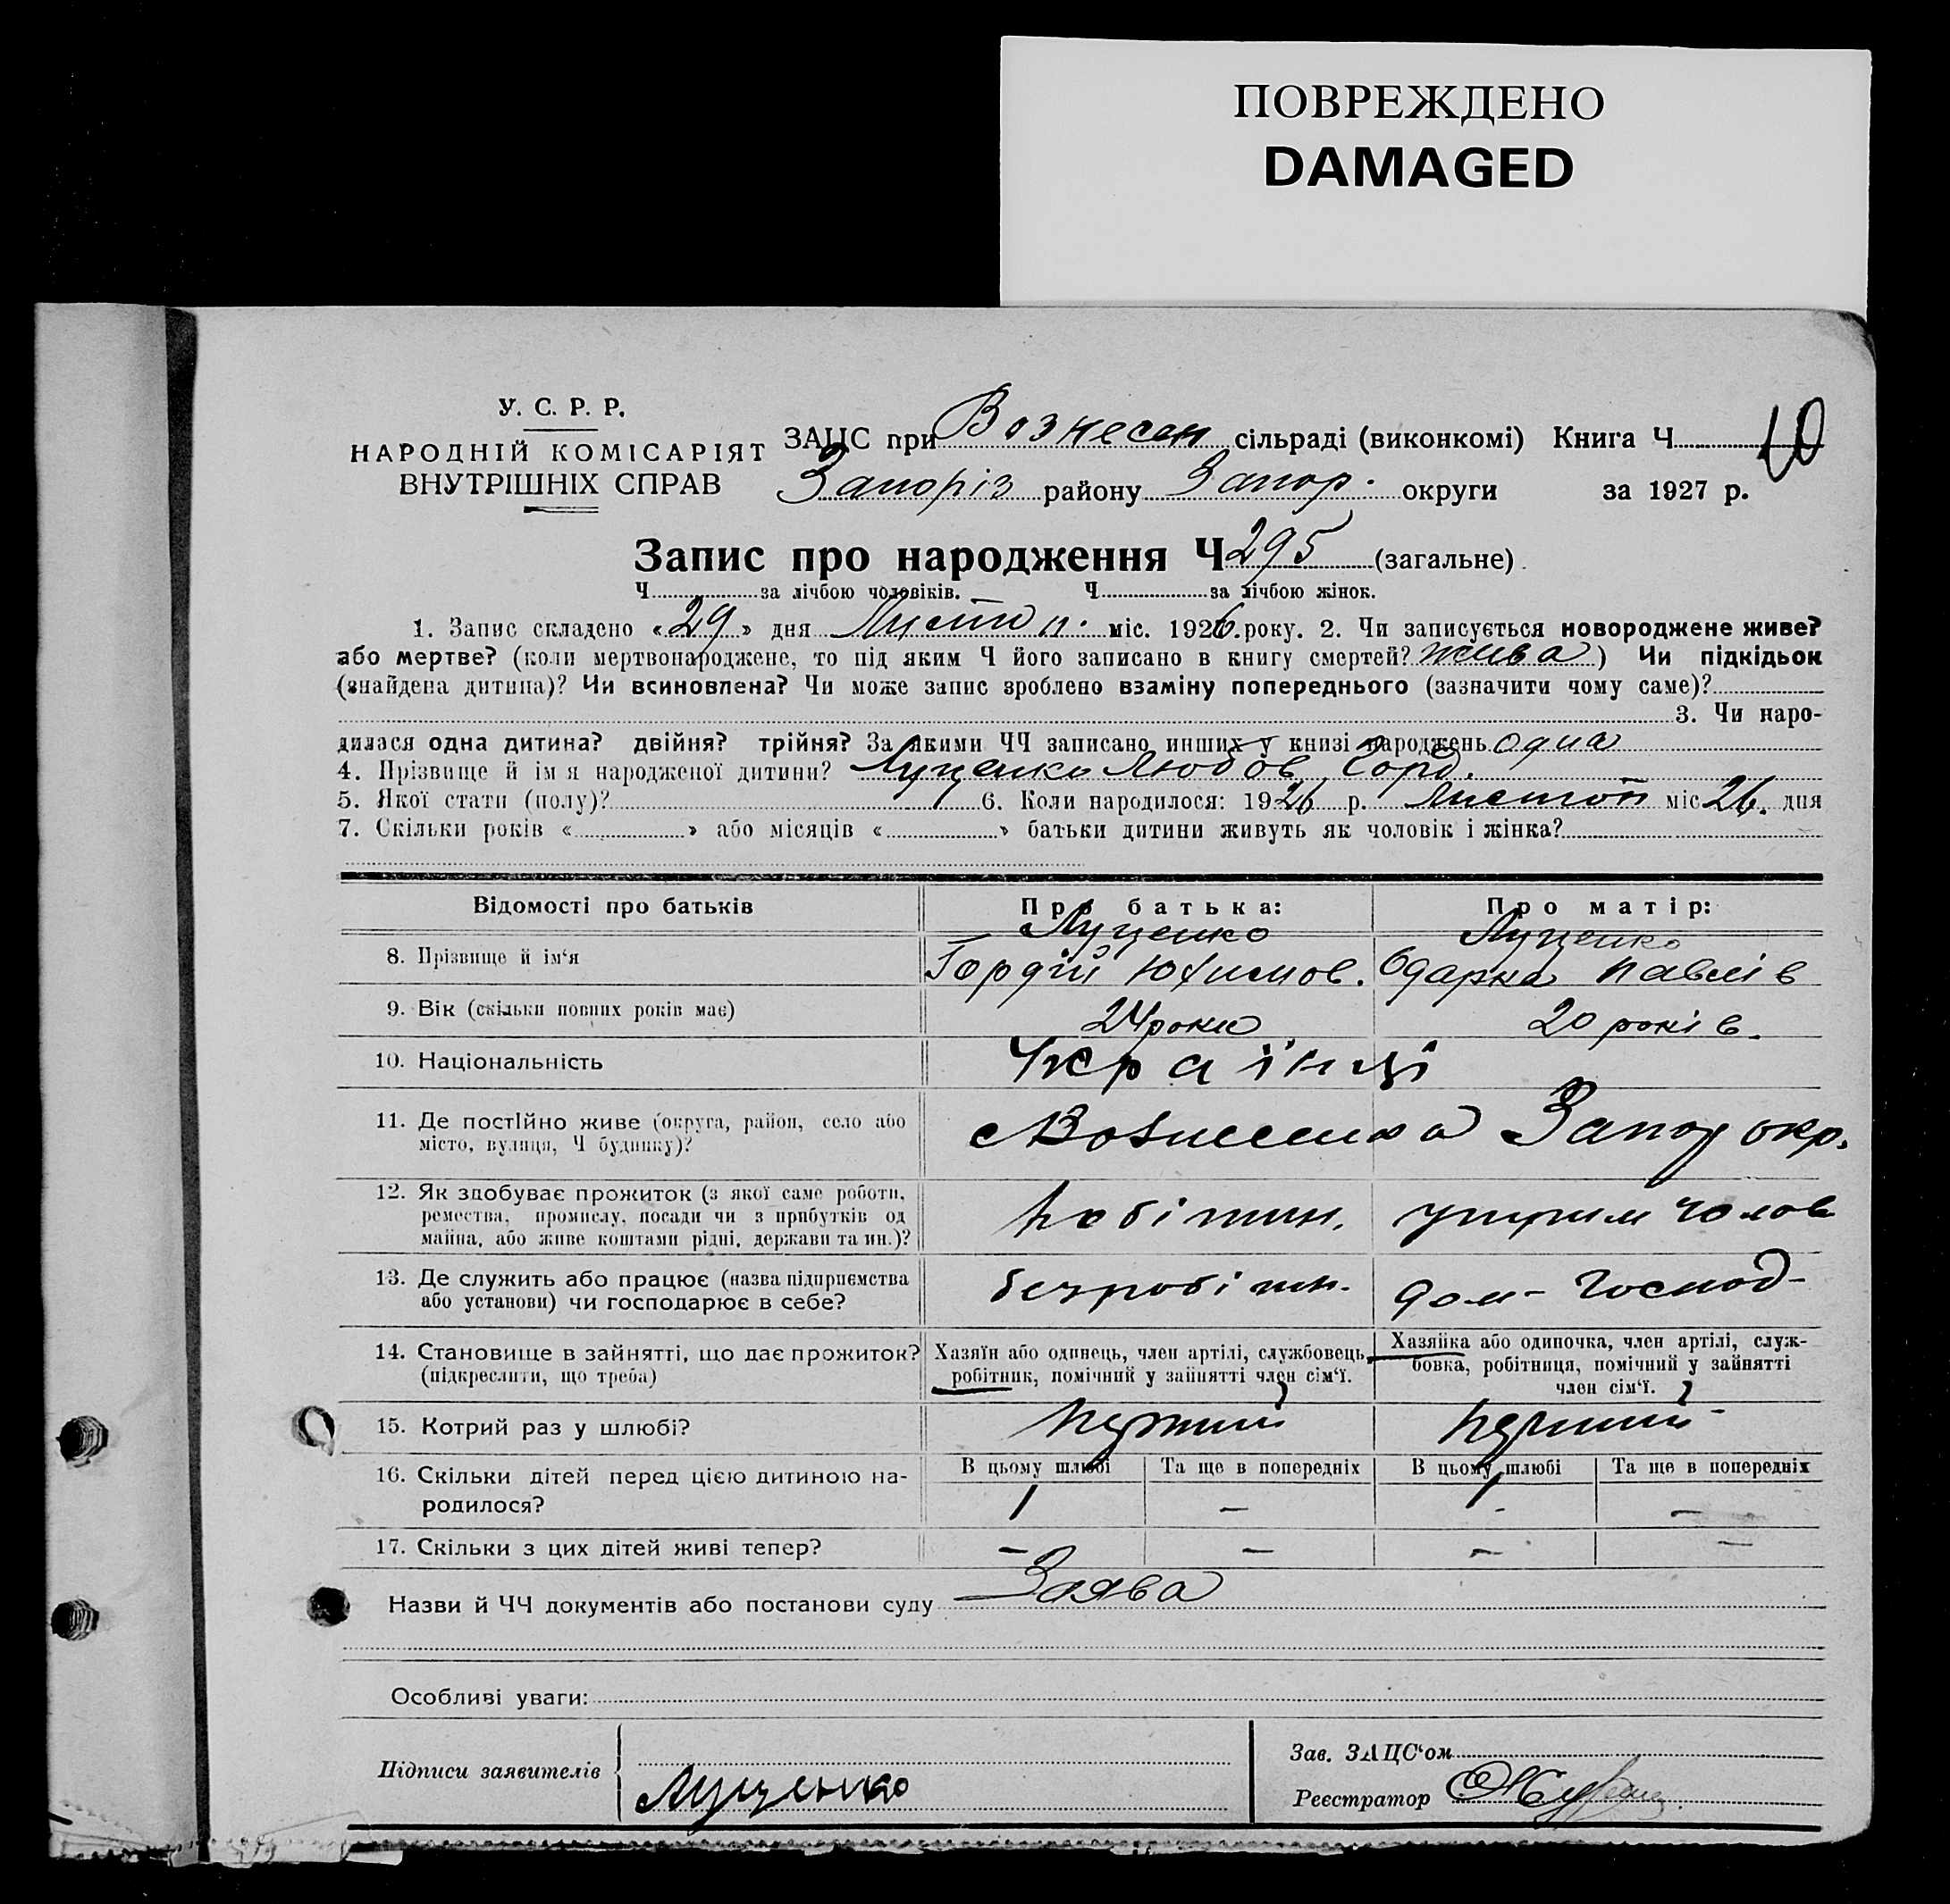 ПОВРЕЖДЕНО
DAMAGED
У. С. Р. Р.
НАРОДНІЙ КОМІСАРІЯТ
ВНУТРІШНІХ СПРАВ
ЗАЦС при Вознесен сільраді (виконкомі) Книга Ч. 10
Запоріз району Запор. округи за 1927 р.
Запис про народження Ч 295 (загальне).
Ч. за лічбою чоловіків. Ч. за лічбою жінок.
1. Запис складено «29» дня Листоп. міс. 1926. року. 2. Чи записується новороджене живе?
або мертве? (коли мертвонароджене, то під яким Ч його записано в книгу смертей? жива) Чи підкідьок
(знайдена дитина)? Чи всиновлена? Чи може запис зроблено взаміну попереднього (зазначити чому саме)?
3. Чи наро-
дилася одна дитина? двійня? трійня? За якими ЧЧ записано инших у книзі народжень одна
4. Прізвище й ім я народженої дитини? Луценко Любов Горд.
5. Якої стати (полу)? 6. Коли народилося: 1926 р. Листоп міс 26. дня
7. Скільки років « » або місяців « » батьки дитини живуть як чоловік і жінка?
Відомості про батьків Про батька: Про матір:
Луценко Луценко
8. Прізвище й ім‘я Гордій Юхимов. Одарка Павлів
9. Вік (скільки повних років має) 24 роки 20 років.
10. Національність Українці
11. Де постійно живе (округа, район, село або
місто, вулиця, Ч будинку)? Вознесенка Запор окр.
12. Як здобуває прожиток (з якої саме роботи,
ремества, промислу, посади чи з прибутків од
майна, або живе коштами рідні, держави та ин.)? Робітник. утрим чолов
13. Де служить або працює (назва підприємства
або установи) чи господарює в себе? безробітн. дом- господ-
14. Становище в зайнятті, що дає прожиток?
(підкреслити, що треба)
Хазяїн або одинець, член артілі, службовець,
робітник, помічний у зайнятті член сім‘ї.
Хазяйка або одиночка, член артілі, служ-
бовка, робітниця, помічний у зайнятті
член сім‘ї.
15. Котрий раз у шлюбі? перший перший
16. Скільки дітей перед цією дитиною на-
родилося?
В цьому шлюбі Та ще в попередніх В цьому шлюбі Та ще в попередніх
1 — 1 —
17. Скільки з цих дітей живі тепер? — — — —
Назви й ЧЧ документів або постанови суду Заява
Особливі уваги:
Підписи заявителів Луценко
Зав. ЗАЦС‘ом
Реєстратор